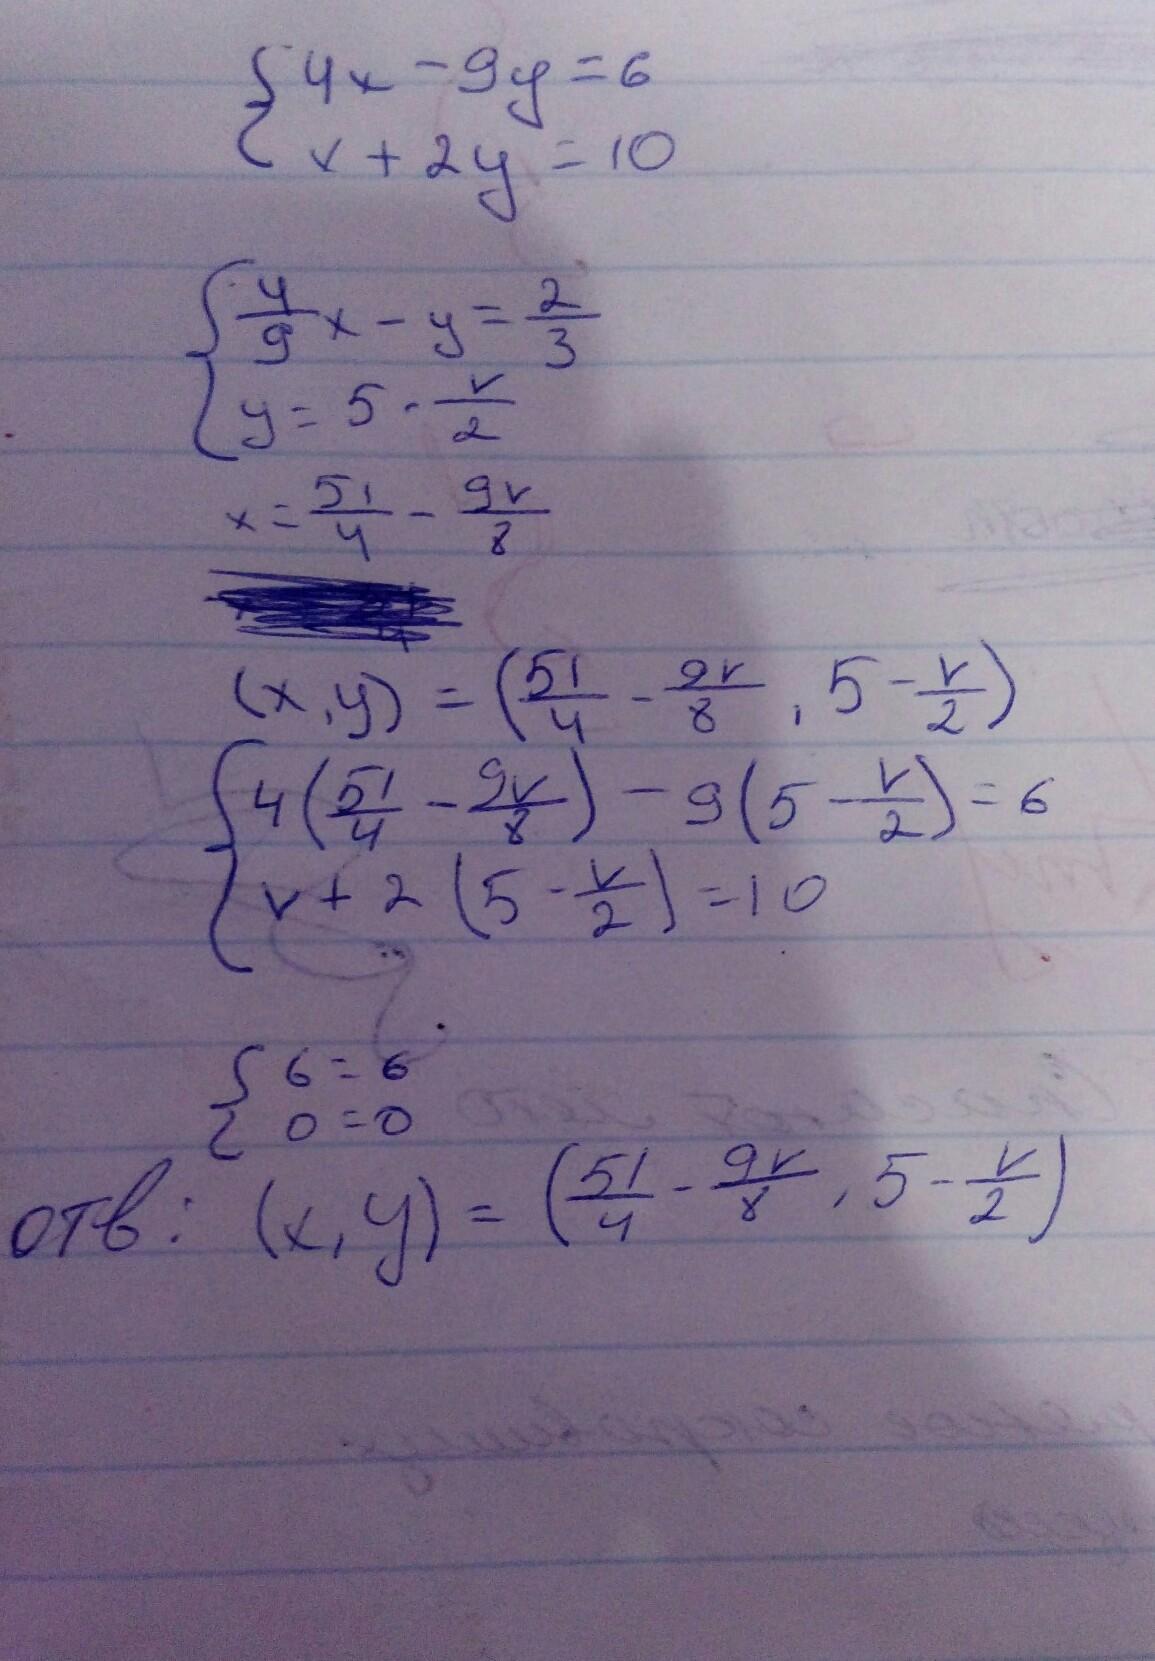 { 4x - 9y = 6
v + 2y = 10
{ 4/9 x - y = 2/3
y = 5 - v/2
x = 51/4 - 9v/8
(x, y) = (51/4 - 9v/8 , 5 - v/2)
{ 4(51/4 - 9v/8) - 9(5 - v/2) = 6
v + 2(5 - v/2) = 10
{ 6 = 6
0 = 0
отв: (x, y) = (51/4 - 9v/8 , 5 - v/2)